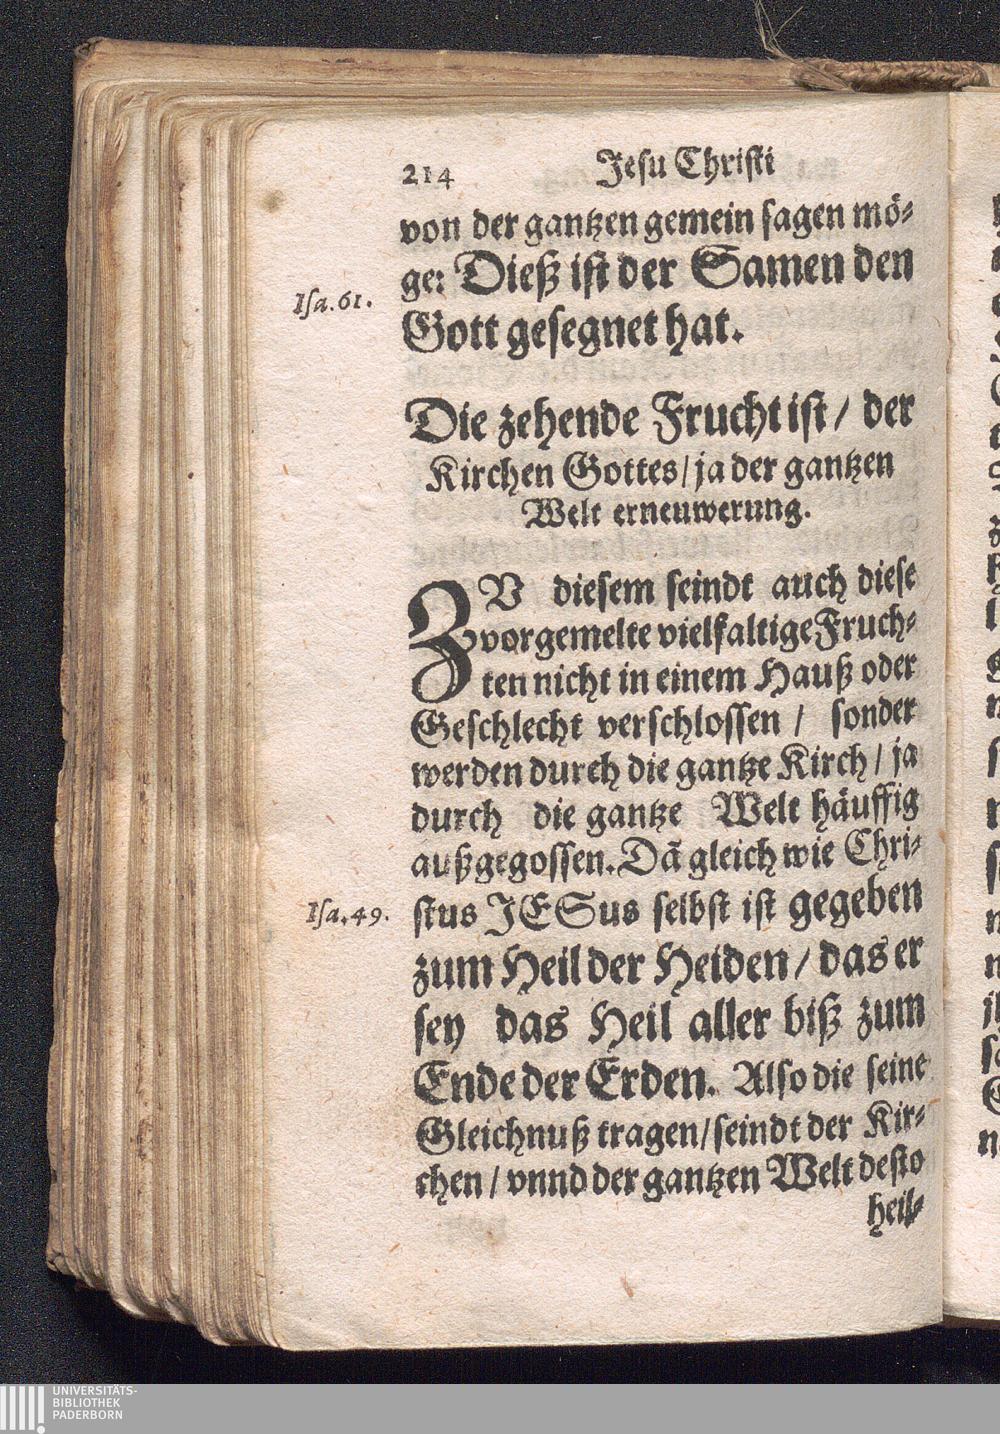 214 Jesu Christi
von der gantzen gemein sagen mö-
ge: Dieß ist der Samen den
Isa. 61.
Gott gesegnet hat.
Die zehende Frucht ist / der
Kirchen Gottes / ja der gantzen
Welt erneuwerung.
ZV diesem seindt auch diese
vorgemelte vielfaltige Fruch-
ten nicht in einem Hauß oder
Geschlecht verschlossen / sonder
werden durch die gantze Kirch / ja
durch die gantze Welt häuffig
außgegossen. Dã gleich wie Chri-
Isa. 49.
stus JESus selbst ist gegeben
zum Heil der Heiden / das er
sey das Heil aller biß zum
Ende der Erden. Also die seine
Gleichnuß tragen / seindt der Kir-
chen / vnnd der gantzen Welt desto
heil-
UNIVERSITÄTS-
BIBLIOTHEK
PADERBORN